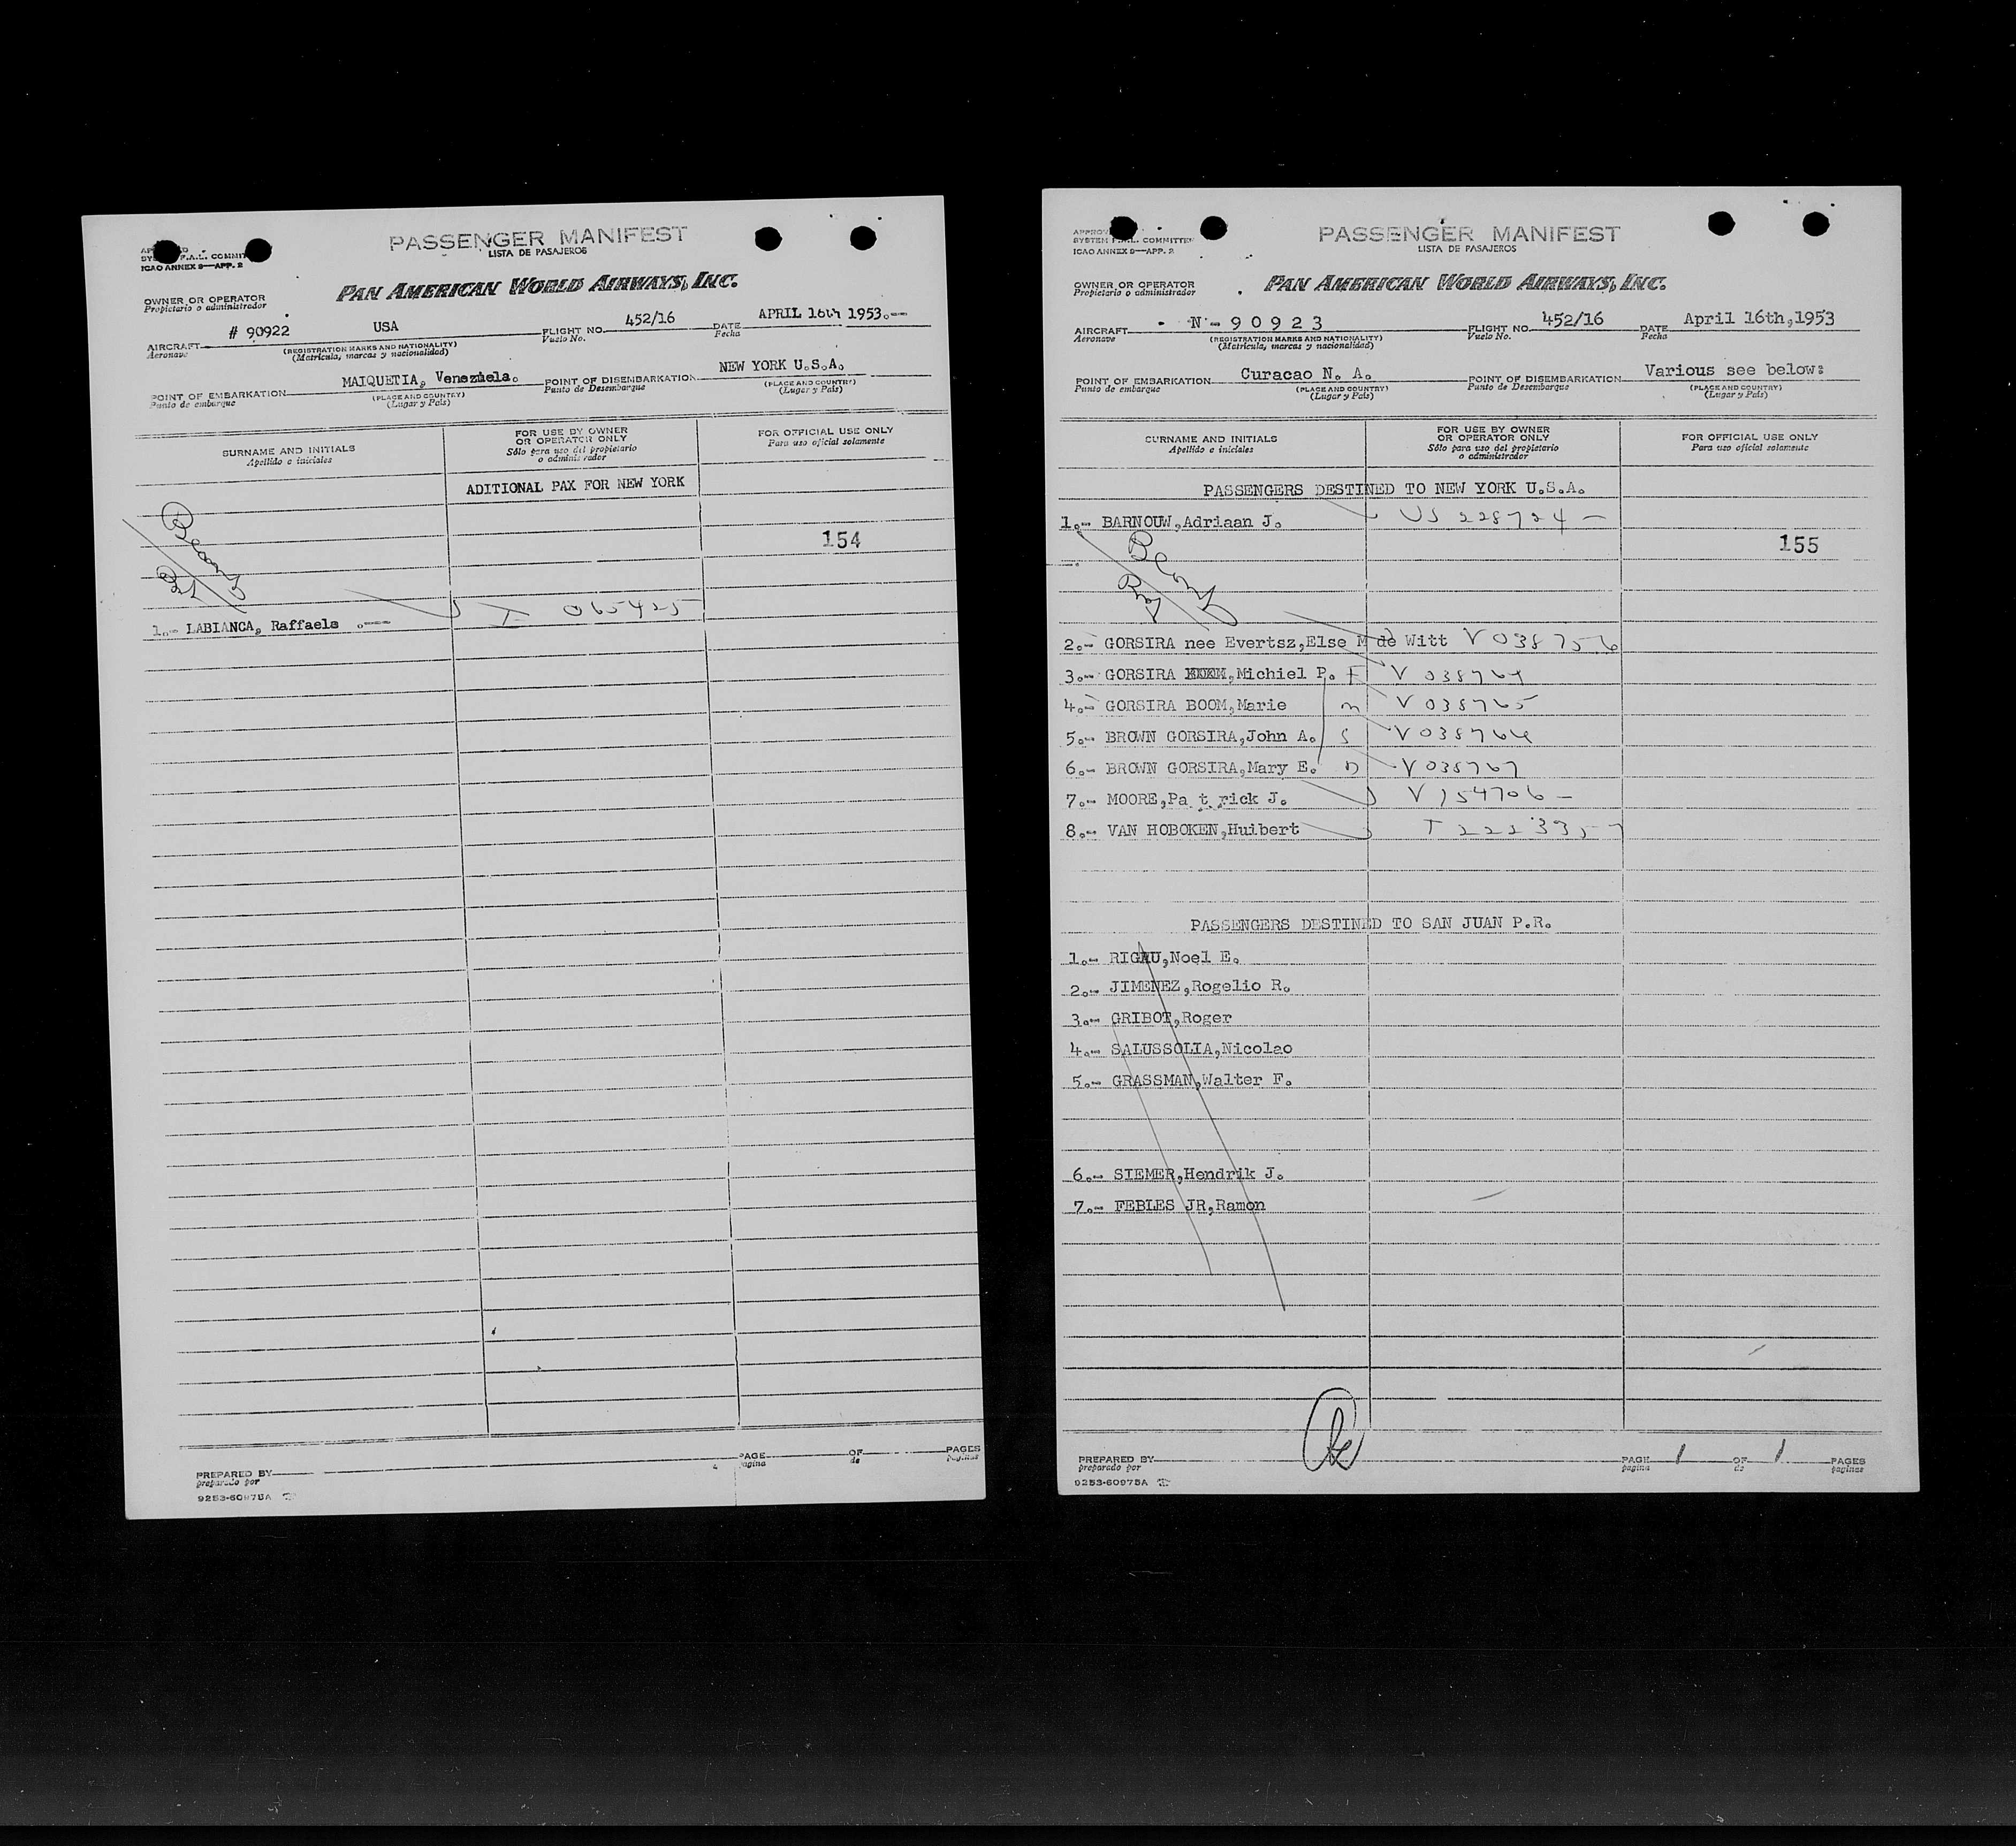 PASSENGER MANIFEST
LISTA DE PASAJEROS
ICAO ANNEX 9—APP. 2
PAN AMERICAN WORLD AIRWAYS, INC.
OWNER OR OPERATOR
Propietario o administrador
AIRCRAFT # 90922 USA FLIGHT NO. 452/16 DATE APRIL 16th 1953.--
Aeronave (REGISTRATION MARKS AND NATIONALITY) Vuelo No. Fecha
(Matricula, marcas y nacionalidad)
POINT OF EMBARKATION MAIQUETIA, Venezuela. POINT OF DISEMBARKATION NEW YORK U.S.A.
Punto de embarque (PLACE AND COUNTRY) Punto de Desembarque (PLACE AND COUNTRY)
(Lugar y País) (Lugar y País)
SURNAME AND INITIALS FOR USE BY OWNER OR OPERATOR ONLY FOR OFFICIAL USE ONLY
Apellido e iniciales Sólo para uso del propietario o administrador Para uso oficial solamente
ADITIONAL PAX FOR NEW YORK
154
1.- LABIANCA, Raffaele .--- I 065425
PREPARED BY PAGE OF PAGES
preparado por pagina de paginas
9253-60975A
PASSENGER MANIFEST
LISTA DE PASAJEROS
SYSTEM F.A.L. COMMITTEE
ICAO ANNEX 9—APP. 2
PAN AMERICAN WORLD AIRWAYS, INC.
OWNER OR OPERATOR
Propietario o administrador
AIRCRAFT N - 9 0 9 2 3 FLIGHT NO. 452/16 DATE April 16th,1953
Aeronave (REGISTRATION MARKS AND NATIONALITY) Vuelo No. Fecha
(Matricula, marcas y nacionalidad)
POINT OF EMBARKATION Curacao N. A. POINT OF DISEMBARKATION Various see below:
Punto de embarque (PLACE AND COUNTRY) Punto de Desembarque (PLACE AND COUNTRY)
(Lugar y País) (Lugar y País)
SURNAME AND INITIALS FOR USE BY OWNER OR OPERATOR ONLY FOR OFFICIAL USE ONLY
Apellido e iniciales Sólo para uso del propietario o administrador Para uso oficial solamente
PASSENGERS DESTINED TO NEW YORK U.S.A.
1.- BARNOUW,Adriaan J. US 228724 -
155
2.- GORSIRA nee Evertsz,Else M de Witt V 038756
3.- GORSIRA,Michiel P. F V 038764
4.- GORSIRA BOOM,Marie m V 038765
5.- BROWN GORSIRA,John A. S V 038766
6.- BROWN GORSIRA,Mary E. D V 038767
7.- MOORE,Pa t rick J. V 154706 -
8.- VAN HOBOKEN,Huibert T 2223357
PASSENGERS DESTINED TO SAN JUAN P.R.
1.- RIGAU,Noel E.
2.- JIMENEZ,Rogelio R.
3.- GRIBOT,Roger
4.- SALUSSOLIA,Nicolao
5.- GRASSMAN,Walter F.
6.- SIEMER,Hendrik J.
7.- FEBLES JR,Ramon
PREPARED BY PAGE 1 OF 1 PAGES
preparado por pagina de paginas
9253-60975A